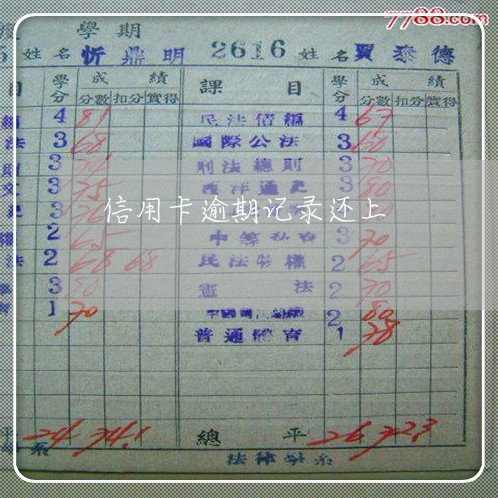 7788.com
學期
姓名 忻鼎明 2616 姓名 賈泰德
目 學分 成績 課目 學分 成績
分數 扣分 實得 分數 扣分 實得
4 81 民法債編 4 67
法 3 68 國際公法 3 60
3 刑法總則 3 70
3 75 西洋通史 80
信用卡逾期记录还上
2 65 3 70
法 2 68 68 民法物權 2 65
3 80 憲法 2 70
1 70 2 80
普通體育 1 78
平 24 74.1 總平 26 72.3
系 法律學系